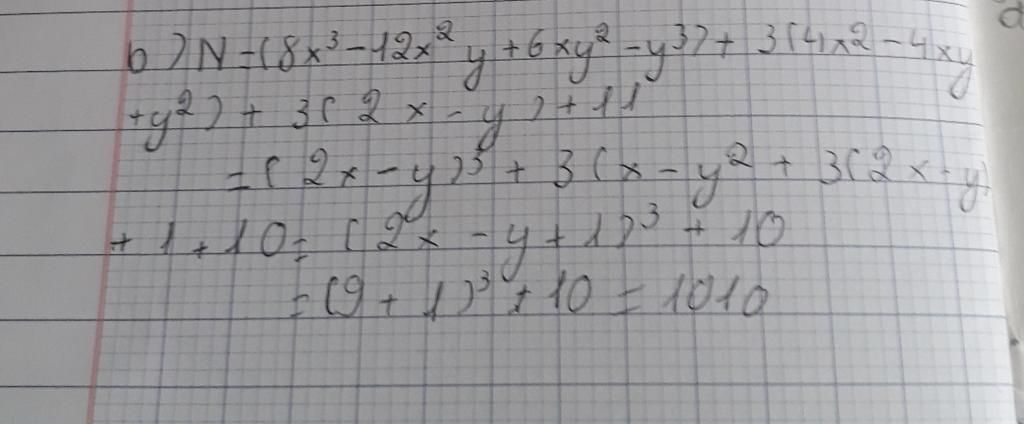 b) N = (8x³ - 12x²y + 6xy² - y³) + 3(4x2 - 4xy
+ y²) + 3(2x - y) + 11
= (2x - y)³ + 3(x - y² + 3(2x - y)
+ 1 + 10 = (2x - y + 1)³ + 10
= (9 + 1)³ + 10 = 1010